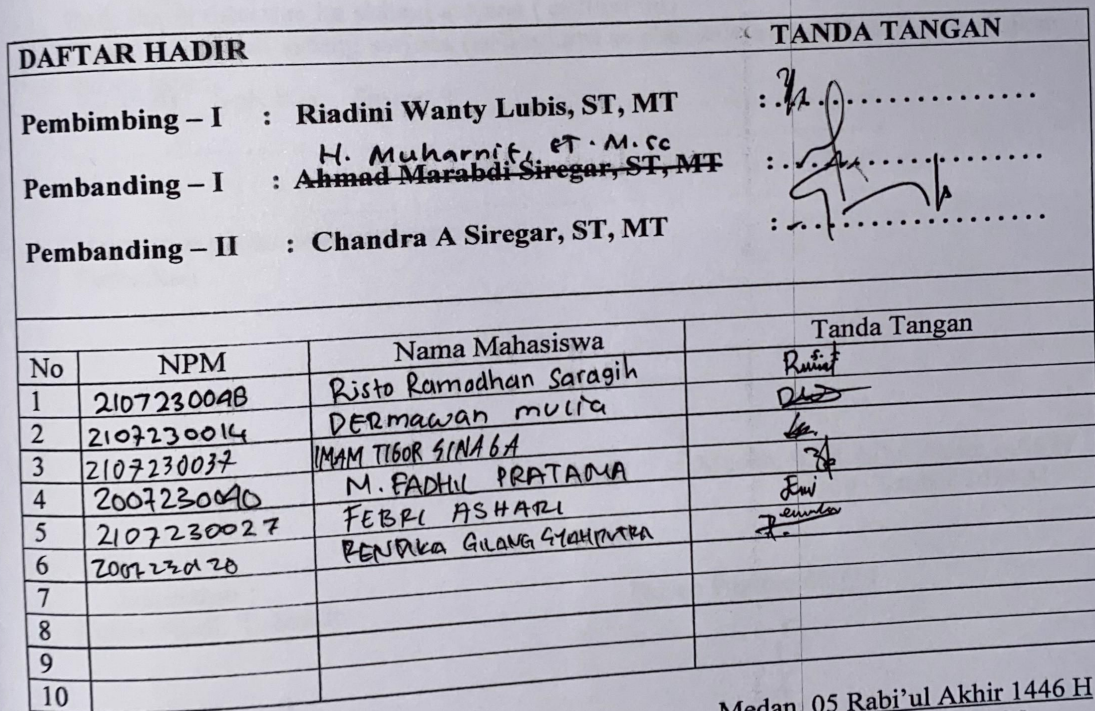 DAFTAR HADIR TANDA TANGAN
Pembimbing – I : Riadini Wanty Lubis, ST, MT :
H. Muharnif, ST. M.Sc
Pembanding – I : Ahmad Marabdi Siregar, ST, MT :
Pembanding – II : Chandra A Siregar, ST, MT :
No NPM Nama Mahasiswa Tanda Tangan
1 2107230048 Risto Ramadhan Saragih
2 2107230014 DERmawan mulia
3 2107230037 IMAM TIGOR SINAGA
4 2007230040 M. FADHIL PRATAMA
5 2107230027 FEBRI ASHARI
6 2007230120 RENDIKA GILANG SYAHPUTRA
7
8
9
10
Medan, 05 Rabi'ul Akhir 1446 H